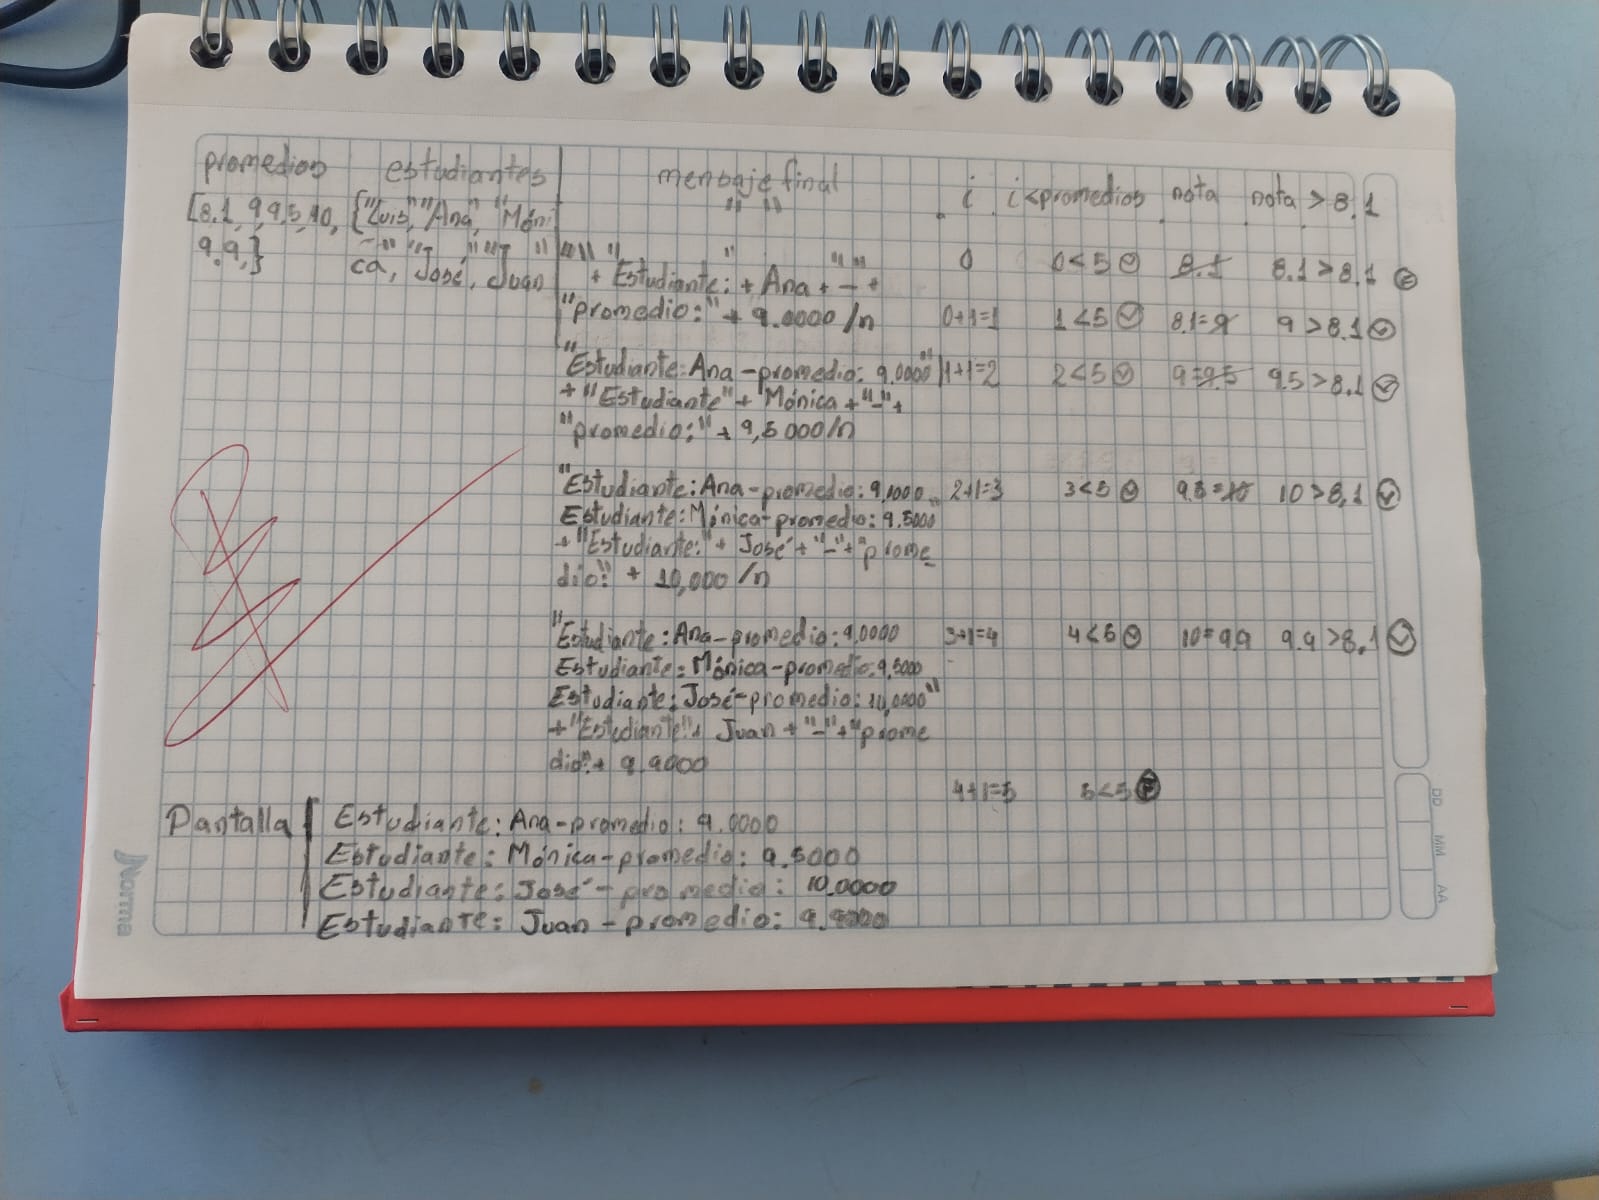 promedios estudiantes mensaje final i i<promedios nota nota > 8.1
[8.1, 9, 9.5, 10, {"Luis", "Ana", "Móni " "
9.9,} ca, José, Juan " + Estudiante: + Ana + - + 0 0<5 8.1 8.1 > 8.1 F
"promedio:" + 9.0000 /n 0+1=1 1<5 V 8.1=9 9 > 8.1 V
"Estudiante: Ana - promedio: 9.0000" 1+1=2 2<5 V 9=9.5 9.5 > 8.1 V
+ "Estudiante" + Mónica + "-" +
"promedio:" + 9,5000/n
"Estudiante: Ana - promedio: 9,0000 2+1=3 3<5 V 9.5=10 10 > 8.1 V
Estudiante: Mónica - promedio: 9.5000"
+ "Estudiante:" + José + "-" + "prome
dio:" + 10,000 /n
"Estudiante: Ana - promedio: 9.0000 3+1=4 4<5 V 10=9.9 9.9 > 8.1 V
Estudiante: Mónica - promedio: 9,5000
Estudiante: José - promedio: 10,0000"
+ "Estudiante" + Juan + "-" + "prome
dio" + 9.9000
4+1=5 5<5 F
Pantalla Estudiante: Ana - promedio: 9.0000
Estudiante: Mónica - promedio: 9.5000
Estudiante: José - promedio: 10.0000
Estudiante: Juan - promedio: 9.9000
Norma
DD MM AA